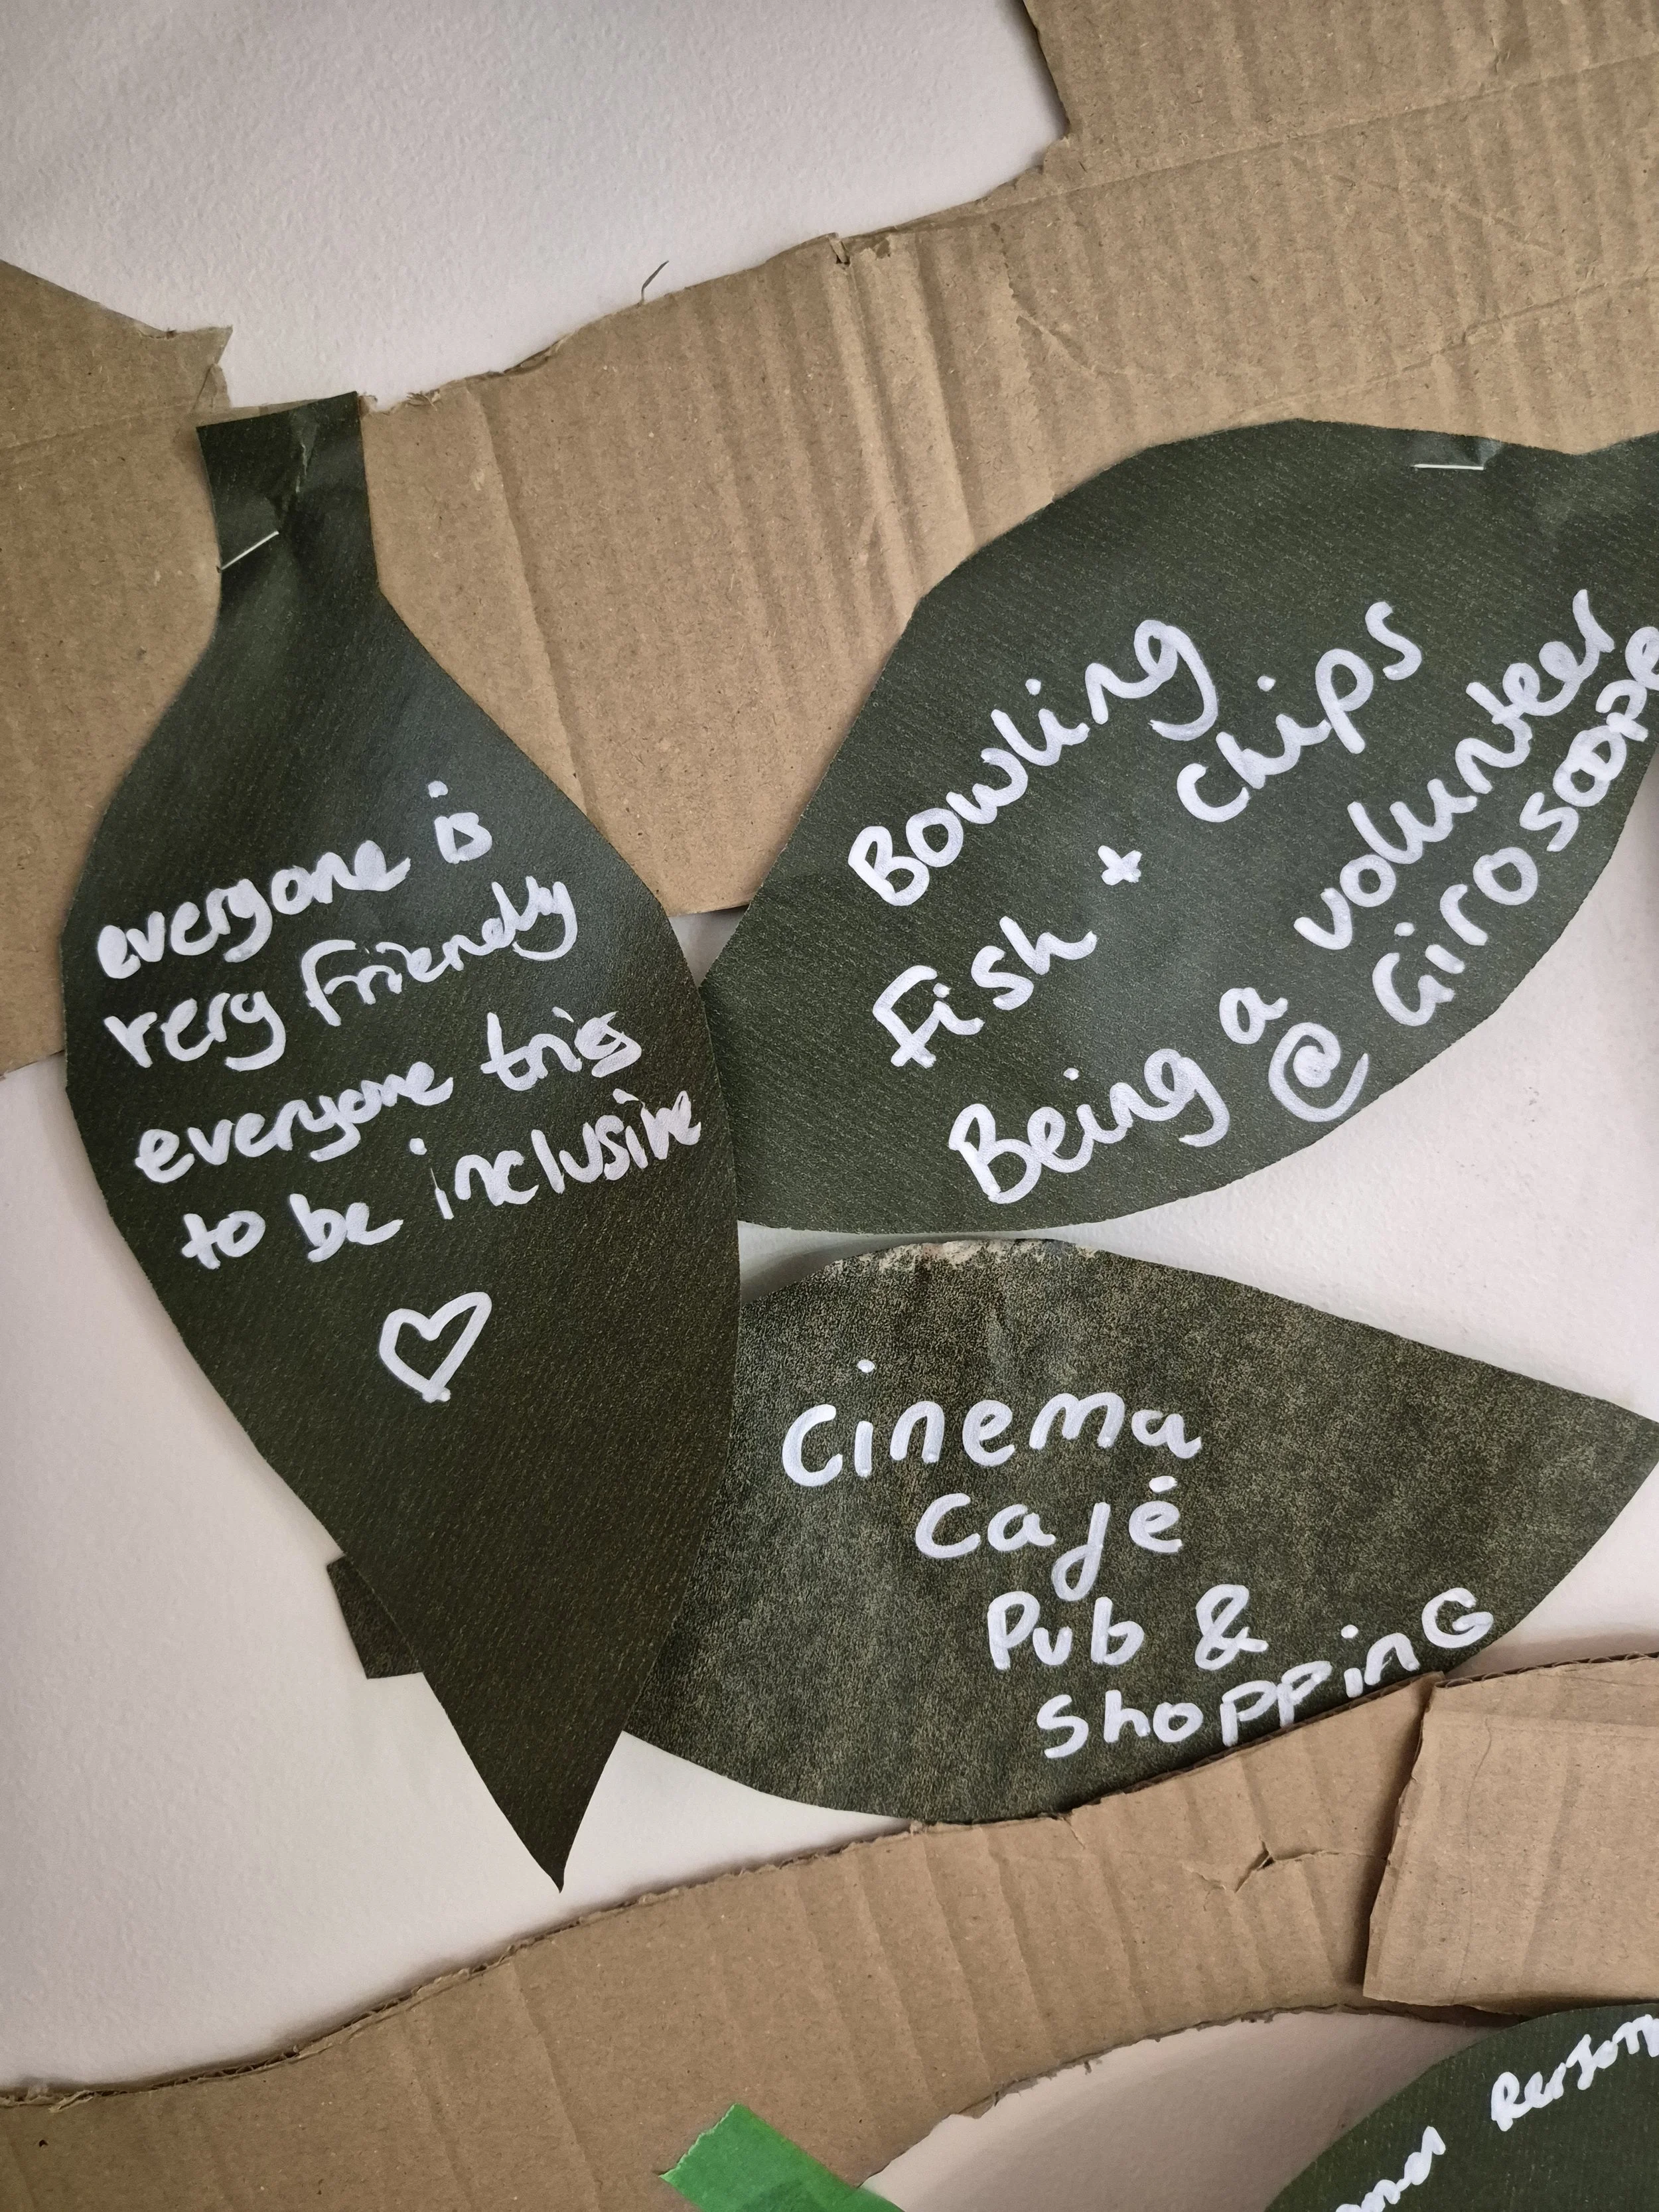 everyone is
very friendly
everyone tries
to be inclusive
Bowling
Fish + chips
Being a volunteer
@ Giro scope
Cinema
Café
Pub &
ShoppinG